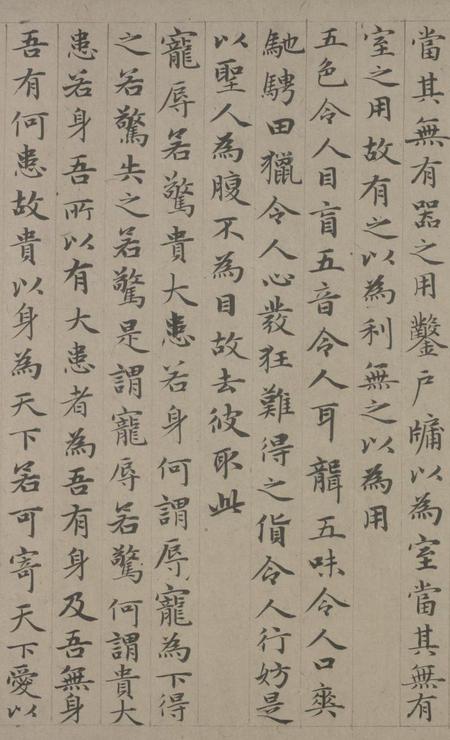 當其無有器之用鑿戶牖以為室當其無有
室之用故有之以為利無之以為用
五色令人目盲五音令人耳聾五味令人口爽
馳騁田獵令人心發狂難得之貨令人行妨是
以聖人為腹不為目故去彼取此
寵辱若驚貴大患若身何謂辱寵為下得
之若驚失之若驚是謂寵辱若驚何謂貴大
患若身吾所以有大患者為吾有身及吾無身
吾有何患故貴以身為天下若可寄天下愛以